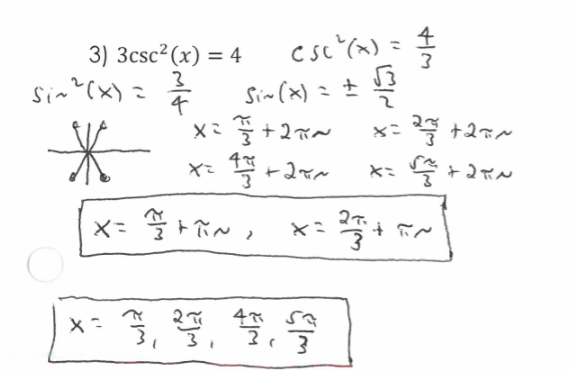 3) 3csc²(x) = 4   csc²(x) = 4/3
sin²(x) = 3/4   sin(x) = ± √3/2
x = π/3 + 2πn   x = 2π/3 + 2πn
x = 4π/3 + 2πn   x = 5π/3 + 2πn
x = π/3 + πn , x = 2π/3 + πn
x = π/3, 2π/3, 4π/3, 5π/3